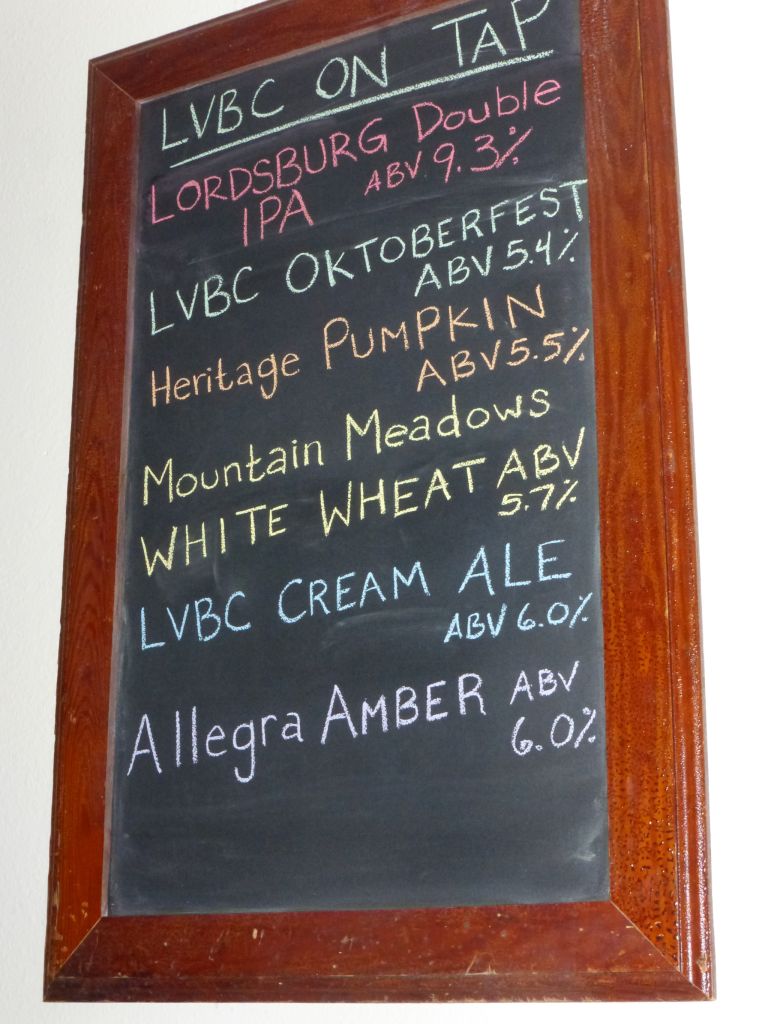 LVBC ON TAP
LORDSBURG Double
IPA ABV 9.3%
LVBC OKTOBERFEST
ABV 5.4%
Heritage PUMPKIN
ABV 5.5%
Mountain Meadows
WHITE WHEAT ABV
5.7%
LVBC CREAM ALE
ABV 6.0%
Allegra AMBER ABV
6.0%